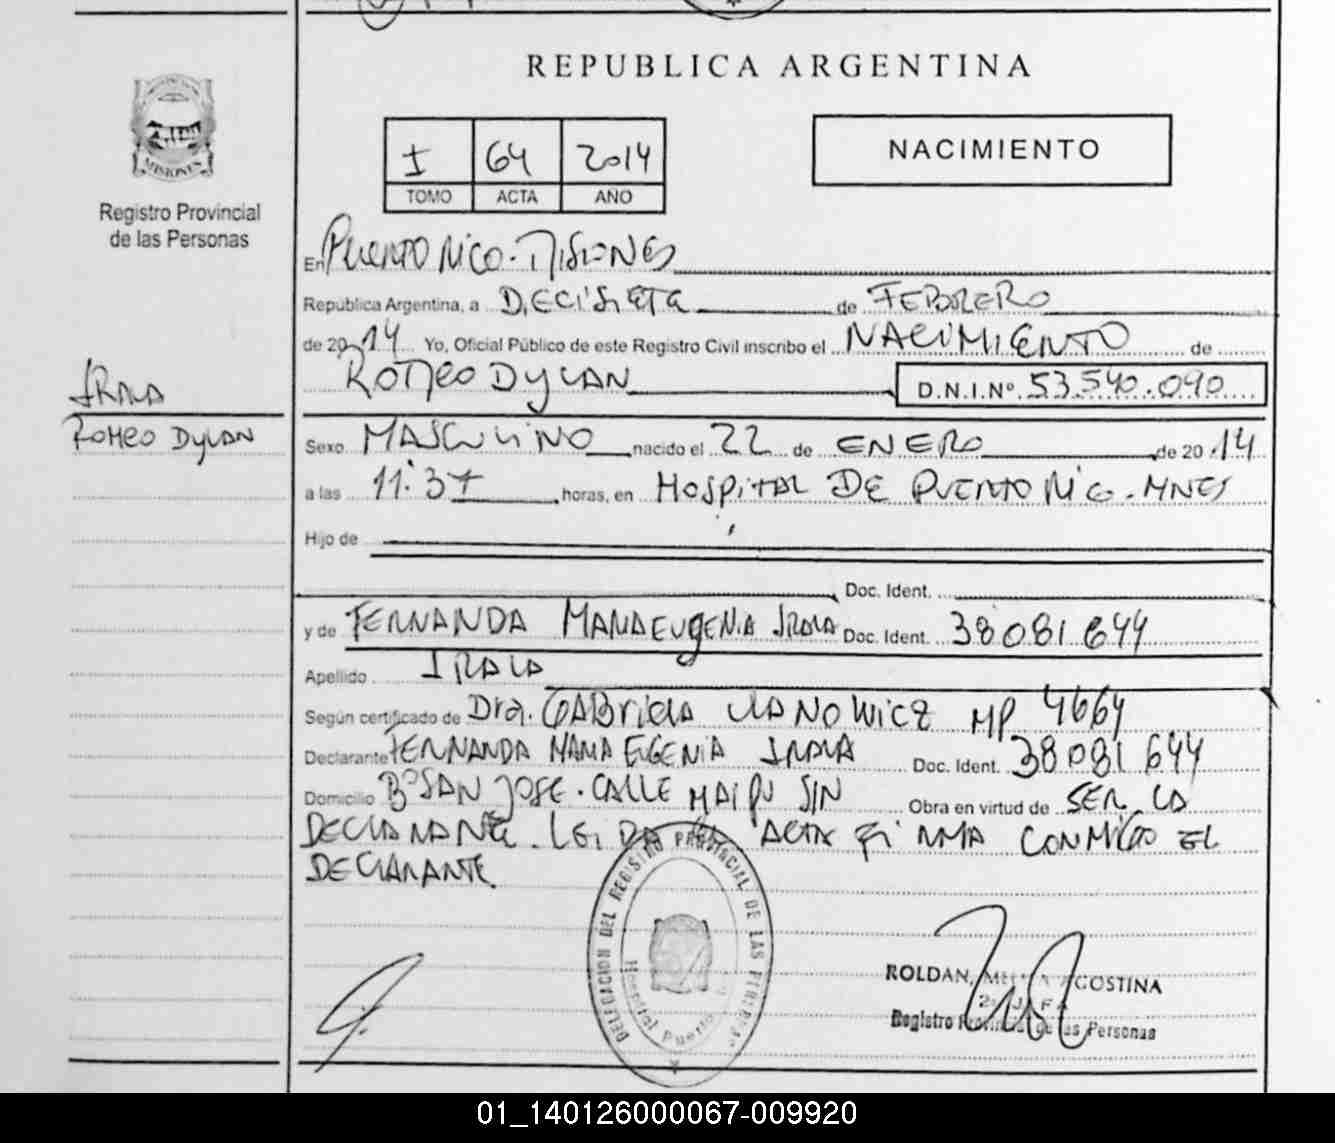 REPUBLICA ARGENTINA
MISIONES
Registro Provincial
de las Personas
I 64 2014
TOMO ACTA AÑO
NACIMIENTO
En PUERTO RICO - MISIONES
República Argentina, a DIECISIETE de FEBRERO
de 2014 Yo, Oficial Público de este Registro Civil inscribo el NACIMIENTO de
ROMEO DYLAN D.N.I.Nº 53.540.090
IRALA
ROMEO DYLAN
Sexo MASCULINO nacido el 22 de ENERO de 2014
a las 11:37 horas, en HOSPITAL DE PUERTO RICO - MNES
Hijo de
Doc. Ident.
y de FERNANDA MARIA EUGENIA IRALA Doc. Ident. 38081644
Apellido IRALA
Según certificado de Dra. GABRIELA ULANOWICZ MP 4664
Declarante FERNANDA MARIA EUGENIA IRALA Doc. Ident. 38081644
Domicilio Bº SAN JOSE - CALLE MAIPU S/N Obra en virtud de SER LA
DECLARANTE. LEIDA EL ACTA FIRMA CONMIGO EL
DECLARANTE.
DELEGACION DEL REGISTRO PROVINCIAL DE LAS PERSONAS
Hospital Puerto
ROLDAN, AGOSTINA
Registro Provincial de las Personas
01_140126000067-009920